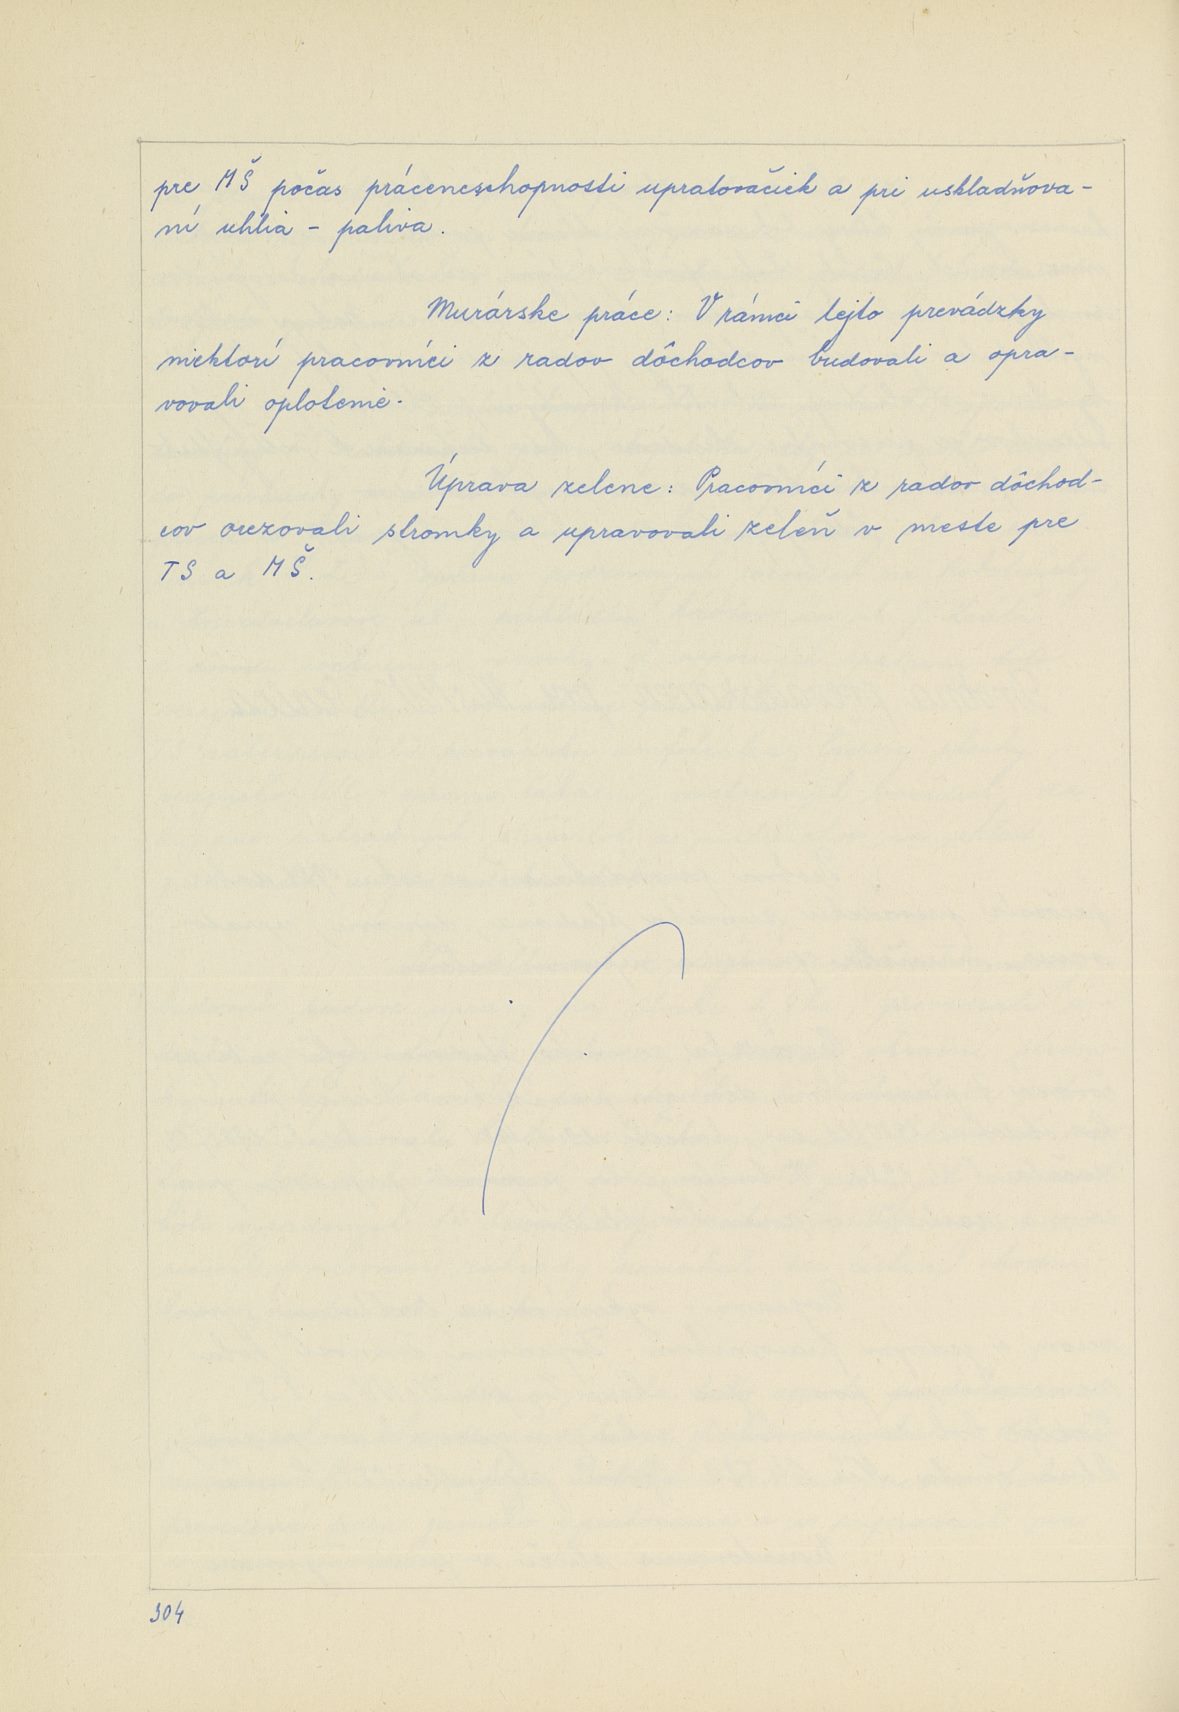 pre MŠ počas práceneschopnosti upratovačiek a pri uskladňova-
ní uhlia - paliva.
Murárske práce: V rámci tejto prevádzky
niektorí pracovníci z radov dôchodcov budovali a opra-
vovali oplotenie.
Úprava zelene: Pracovníci z radov dôchod-
cov orezovali stromky a upravovali zeleň v meste pre
TS a MŠ.
304